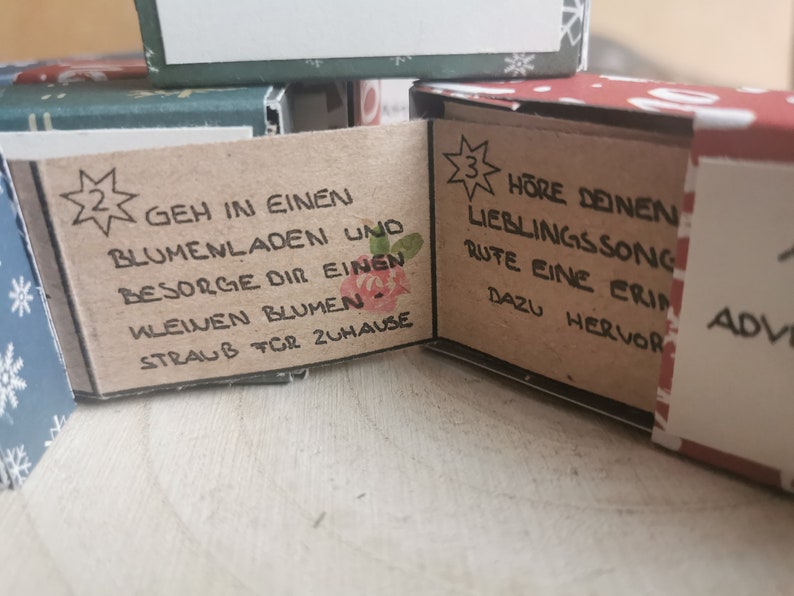 2
GEH IN EINEN
BLUMENLADEN UND
BESORGE DIR EINEN
KLEINEN BLUMEN-
STRAUß FÜR ZUHAUSE
3
HÖRE DEINEN
LIEBLINGSSONG
RUFE EINE
DAZU HERVOR